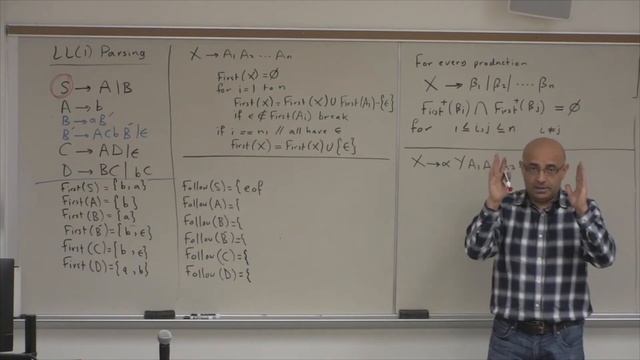 LL(1) Parsing
S → A | B
A → b
B → aB′
B′ → ACbB′ | ϵ
C → AD | ϵ
D → BC | bC
First(S) = {b, a}
First(A) = {b}
First(B) = {a}
First(B′) = {b, ϵ}
First(C) = {b, ϵ}
First(D) = {a, b}
X → A₁ A₂ ... Aₙ
First(X) = ∅
for i = 1 to n
First(X) = First(X) ∪ First(Aᵢ) - {ϵ}
if ϵ ∉ First(Aᵢ) break
if i == n; // all have ϵ
First(X) = First(X) ∪ {ϵ}
Follow(S) = {eof
Follow(A) = {
Follow(B) = {
Follow(B′) = {
Follow(C) = {
Follow(D) = {
For every production
X → β₁ | β₂ | ... βₙ
First⁺(βᵢ) ∩ First⁺(βⱼ) = ∅
for 1 ≤ i,j ≤ n i ≠ j
X → α Y A₁ A₂